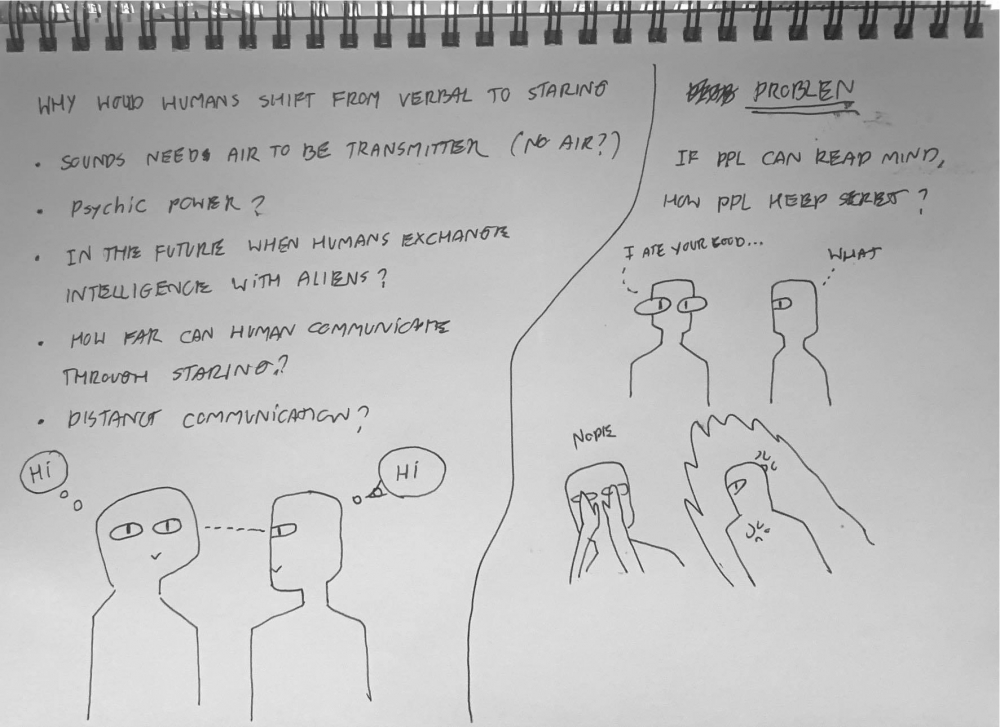 WHY WOUD HUMANS SHIFT FROM VERBAL TO STARING
• SOUNDS NEEDS AIR TO BE TRANSMITTER (NO AIR?)
• PSYCHIC POWER?
• IN THE FUTURE WHEN HUMANS EXCHANGE
INTELLIGENCE WITH ALIENS?
• HOW FAR CAN HUMAN COMMUNICATE
THROUGH STARING?
• DISTANT COMMUNICATION?
Hi
Hi
PROBLEN
IF PPL CAN READ MIND,
HOW PPL KEEP SERET?
I ATE YOUR FOOD...
WHAT
NOPE